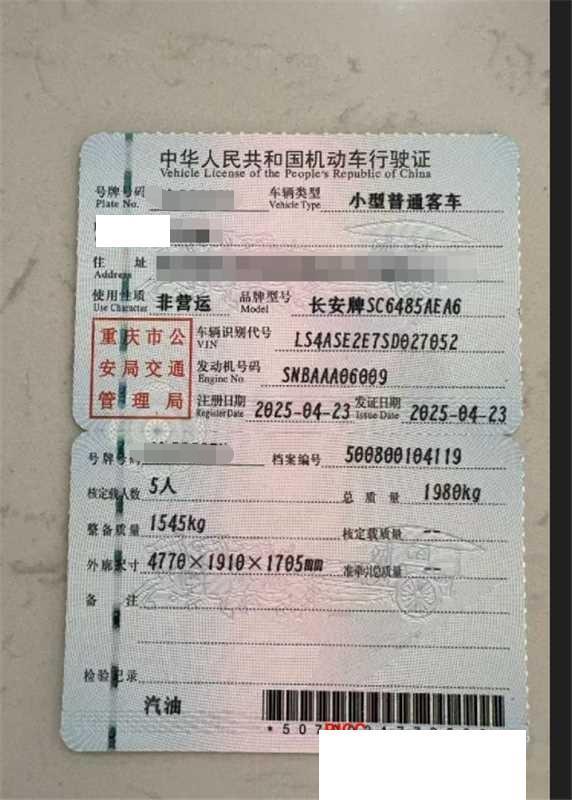 中华人民共和国机动车行驶证
Vehicle License of the People's Republic of China
号牌号码 车辆类型 小型普通客车
Plate No. Vehicle Type
住 址
Address
使用性质 非营运 品牌型号 长安牌SC6485AEA6
Use Character Model
重庆市公
安局交通
管理局
车辆识别代号 LS4ASE2E7SD027052
VIN
发动机号码 SNBAAA06009
Engine No.
注册日期 2025-04-23 发证日期 2025-04-23
Register Date Issue Date
号牌号码 档案编号 500800104119
核定载人数 5人 总质量 1980kg
整备质量 1545kg 核定载质量 --
外廓尺寸 4770×1910×1705mm 准牵引总质量 --
备 注
检验记录
汽油